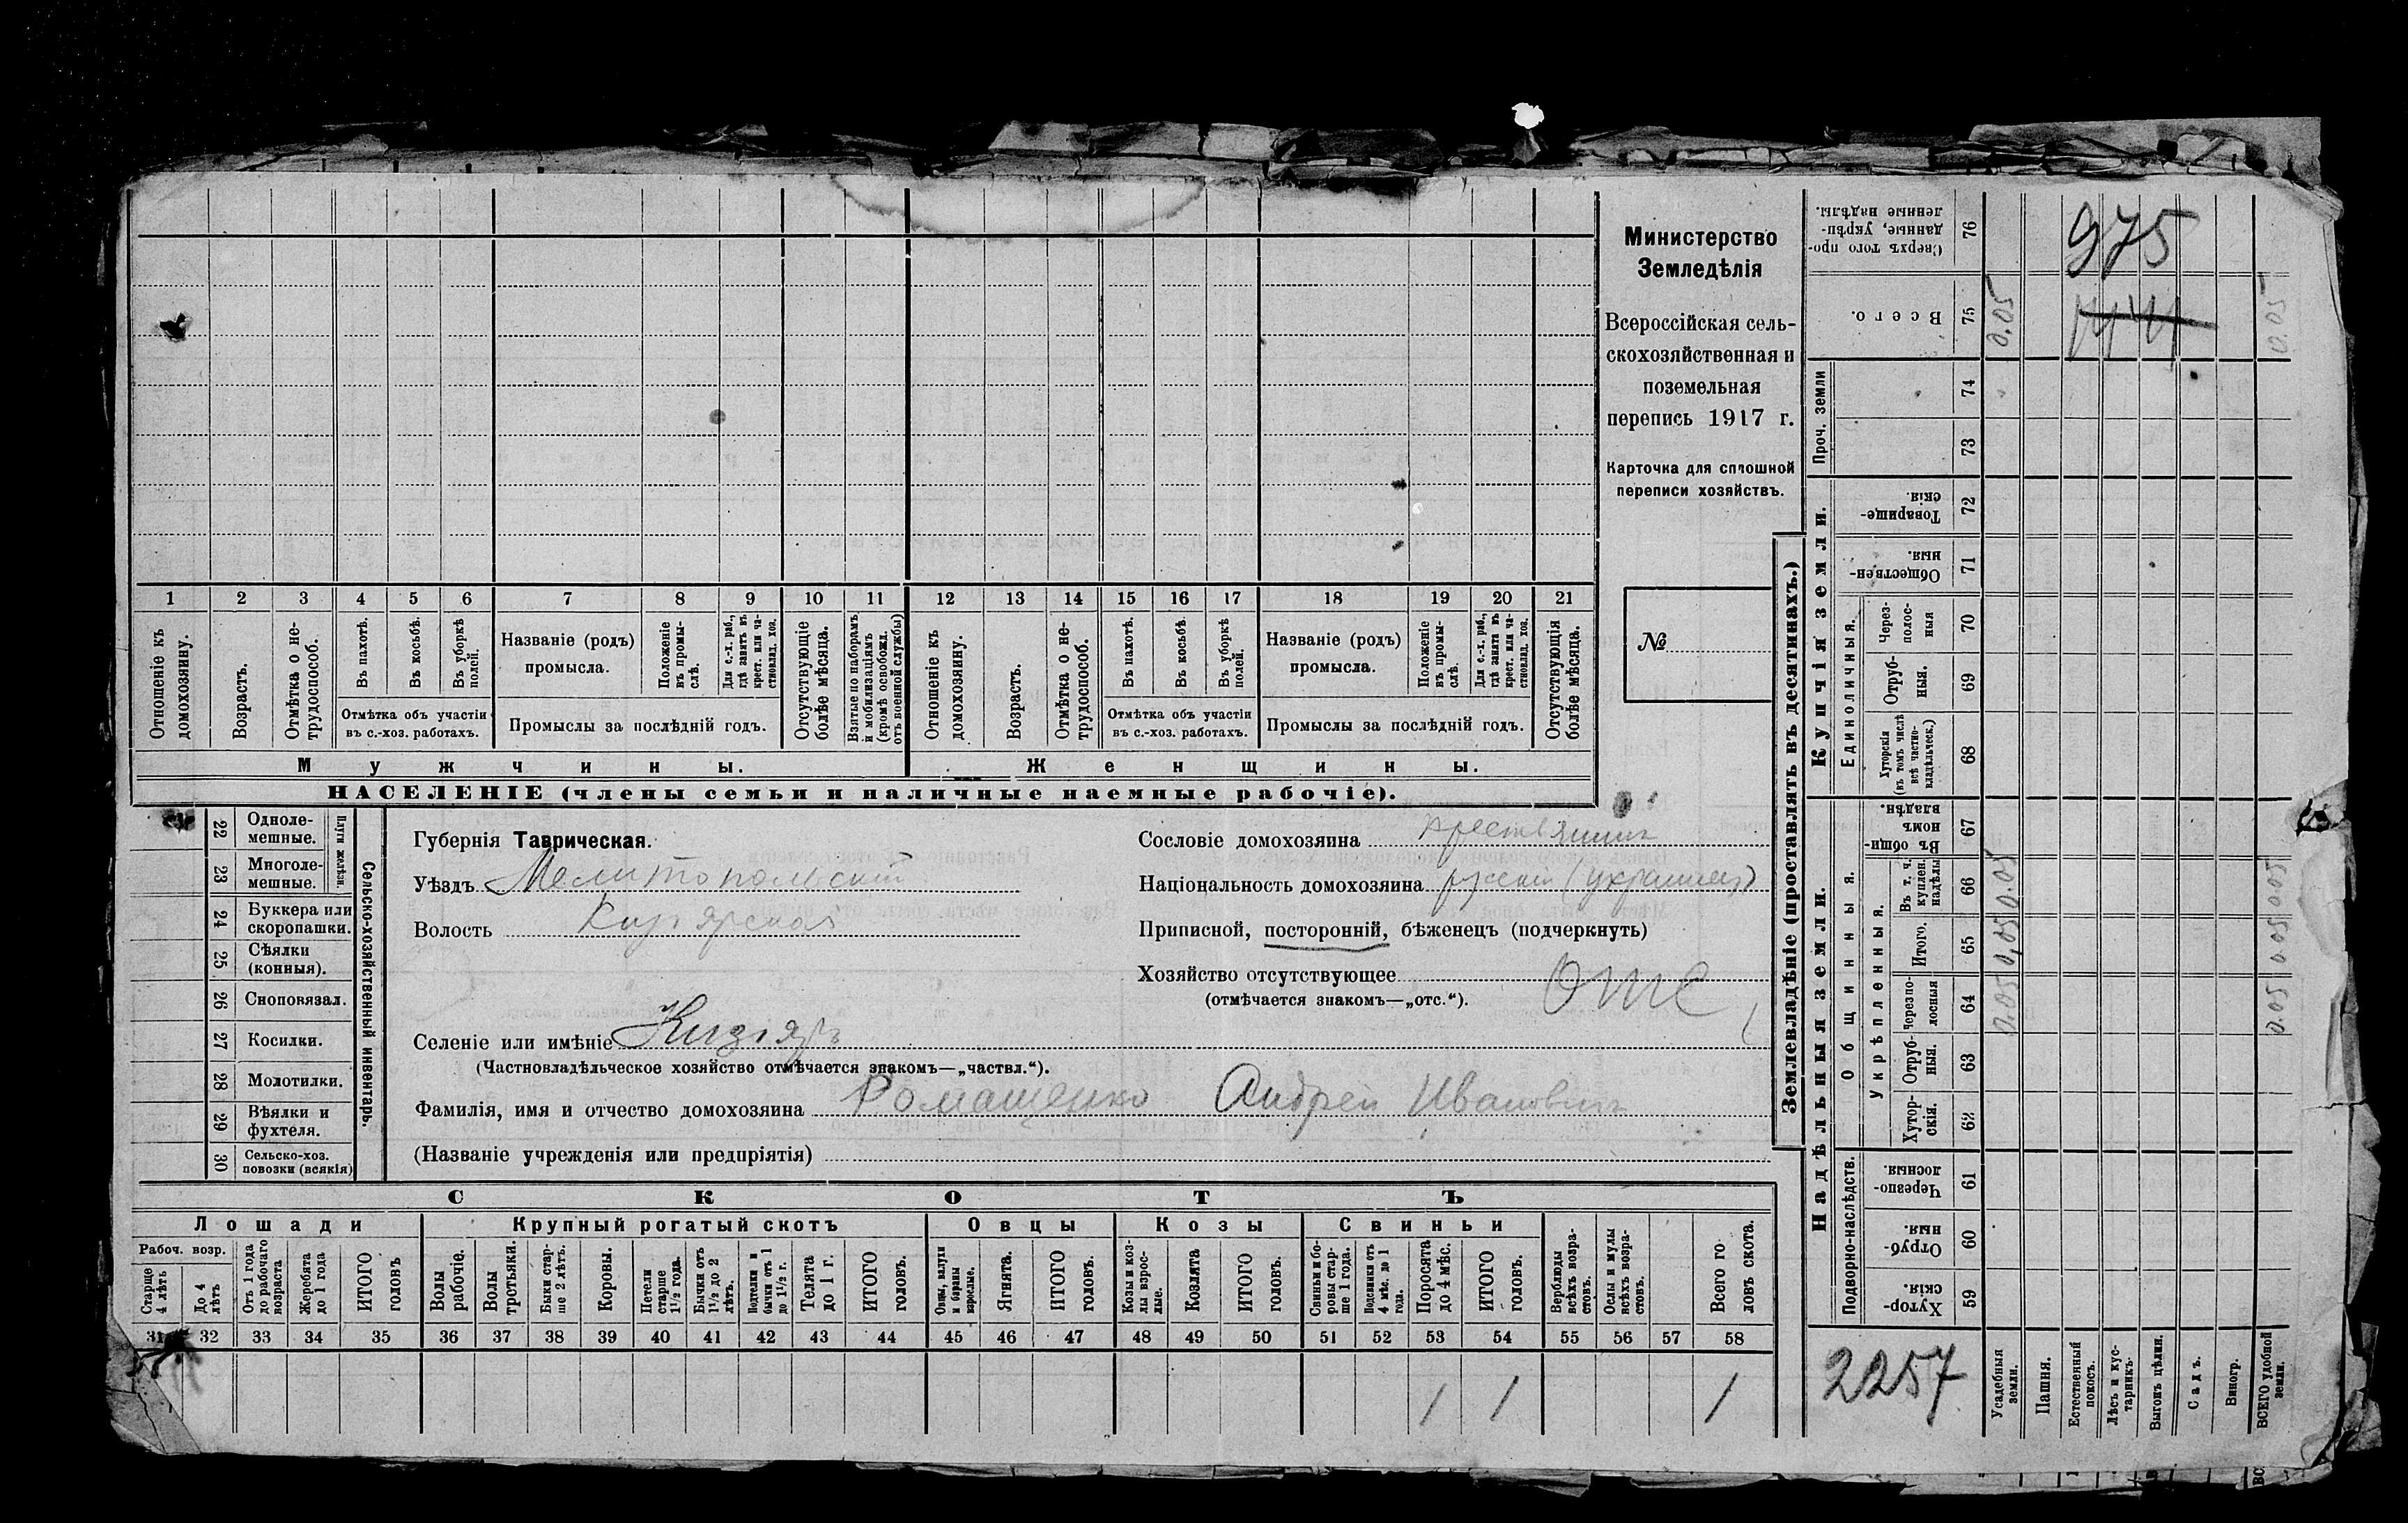 Министерство
Земледѣлія
Всероссійская сель-
скохозяйственная и
поземельная
перепись 1917 г.
Карточка для сплошной
переписи хозяйствъ.
№
1 2 3 4 5 6 7 8 9 10 11 12 13 14 15 16 17 18 19 20 21
Отношеніе къ домохозяину.
Возрастъ.
Отмѣтка о не-трудоспособ.
Въ пахотѣ.
Въ косьбѣ.
Въ уборкѣ полей.
Отмѣтка объ участіи въ с.-хоз. работахъ.
Названіе (родъ) промысла.
Положеніе въ промы-слѣ.
Для с.-х. раб., гдѣ занятъ въ крест. или ча-стновлад. хоз.
Промыслы за послѣдній годъ.
Отсутствующіе болѣе мѣсяца.
Взятые по наборамъ и мобилизаціямъ (кромѣ освобожд. отъ военной службы)
Отношеніе къ домохозяину.
Возрастъ.
Отмѣтка о не-трудоспособ.
Въ пахотѣ.
Въ косьбѣ.
Въ уборкѣ полей.
Отмѣтка объ участіи въ с.-хоз. работахъ.
Названіе (родъ) промысла.
Положеніе въ промы-слѣ.
Для с.-х. раб., гдѣ занята въ крест. или ча-стновлад. хоз.
Промыслы за послѣдній годъ.
Отсутствующія болѣе мѣсяца.
Мужчины. Женщины.
НАСЕЛЕНІЕ (члены семьи и наличные наемные рабочіе).
22 Одноле-мешные.
23 Многоле-мешные.
Плуги желѣзн.
24 Буккера или скоропашки.
25 Сѣялки (конныя).
26 Сноповязал.
27 Косилки.
28 Молотилки.
29 Вѣялки и фухтеля.
30 Сельско-хоз. повозки (всякія)
Сельско-хозяйственный инвентарь.
Губернія Таврическая.
Уѣздъ Мелитопольскій
Волость Кизъярская
Селеніе или имѣніе Кизіяръ
(Частновладѣльческое хозяйство отмѣчается знакомъ—„частвл.“).
Фамилія, имя и отчество домохозяина Ромащенко Андрей Ивановичъ
(Названіе учрежденія или предпріятія)
Сословіе домохозяина крестьянинъ
Національность домохозяина русскій (украинец)
Приписной, посторонній, бѣженецъ (подчеркнуть)
Хозяйство отсутствующее Отс
(отмѣчается знакомъ—„отс.“).
СКОТЪ
Лошади Крупный рогатый скотъ Овцы Козы Свиньи
Рабоч. возр.
Старше 4 лѣтъ
До 4 лѣтъ
Отъ 1 года до рабочаго возраста
Жеребята до 1 года
ИТОГО головъ
Волы рабочіе.
Волы третьяки.
Быки стар-ше 2 лѣтъ.
Коровы.
Нетели старше 1½ года.
Бычки отъ 1½ до 2 лѣтъ.
Нетелки и бычки отъ 1 до 1½ г.
Телята до 1 г.
ИТОГО головъ.
Овцы, валухи и бараны взрослые.
Ягнята.
ИТОГО головъ.
Козы и коз-лы взрос-лые.
Козлята
ИТОГО головъ.
Свиньи и бо-ровы стар-ше 1 года.
Подсвинки отъ 4 мѣс. до 1 года.
Поросята до 4 мѣс.
ИТОГО головъ.
Верблюды всѣхъ возра-стовъ.
Ослы и мулы всѣхъ возра-стовъ.
Всего го ловъ скота.
31 32 33 34 35 36 37 38 39 40 41 42 43 44 45 46 47 48 49 50 51 52 53 54 55 56 57 58
1 1 1
Землевладѣніе (проставлять въ десятинахъ.)
Надѣльныя земли. Купчія земли. Проч. земли
Подворно-наслѣдств.
Общинныя.
Укрѣпленныя.
Единоличныя.
Хутор-скія. 59
Отруб-ныя. 60
Черезпо-лосныя. 61
Хутор-скія. 62
Отруб-ныя. 63
Черезпо-лосныя 64
Итого. 65
Въ т. ч. куплен. надѣлы 66
Въ общин-номъ владѣн. 67
Хуторскія (въ томъ числѣ всѣ частно-владѣльческ.) 68
Отруб-ныя. 69
Через-полос-ныя 70
Обществен-ныя. 71
Товарище-скія. 72
73
74
Всего. 75
Сверхъ того про-данные, укрѣп-ленные надѣлы. 76
Усадебныя земли.
0.05 0,05 0.05 0.05
Пашня.
Естественный покосъ.
Лѣсъ и кус-тарникъ.
Выгонъ цѣлин.
Садъ.
Виногр.
ВСЕГО удобной земли.
0.05 0.05 0.05 0.05
975
2257